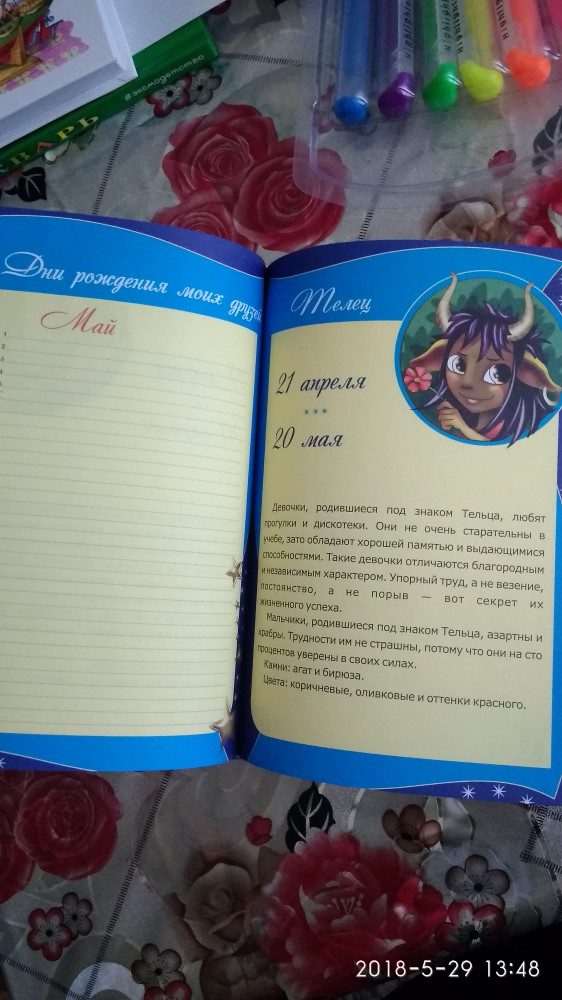 #эксмодетство
ВАРЬ
Дни рождения моих друзей
Май
1
2
3
4
5
Телец
21 апреля
20 мая
Девочки, родившиеся под знаком Тельца, любят
прогулки и дискотеки. Они не очень старательны в
учебе, зато обладают хорошей памятью и выдающимися
способностями. Такие девочки отличаются благородным
и независимым характером. Упорный труд, а не везение,
постоянство, а не порыв — вот секрет их
жизненного успеха.
Мальчики, родившиеся под знаком Тельца, азартны и
храбры. Трудности им не страшны, потому что они на сто
процентов уверены в своих силах.
Камни: агат и бирюза.
Цвета: коричневые, оливковые и оттенки красного.
2018-5-29 13:48